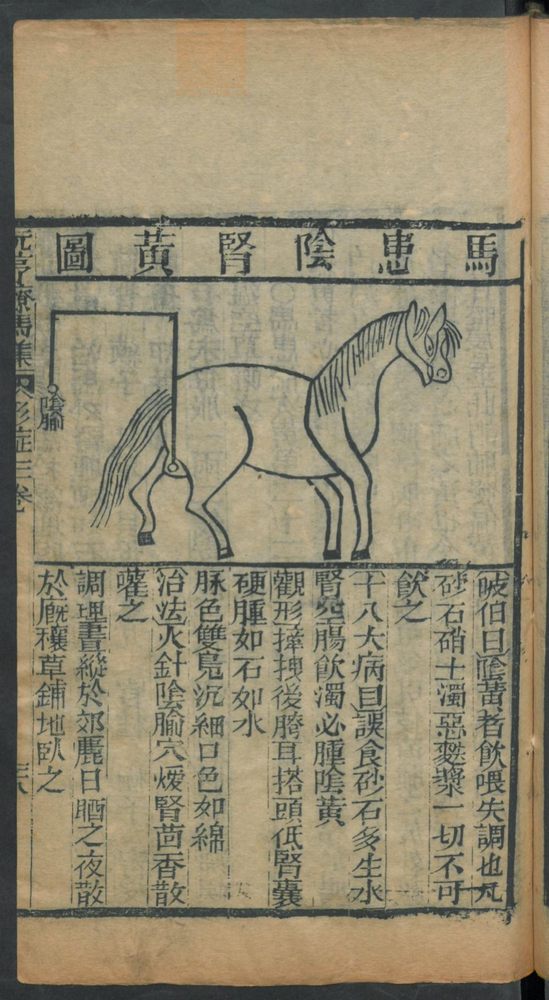 馬患陰腎黃圖
陰腧
岐伯曰陰黃者飲喂失調也凡
砂石硝土濁惡麬漿一切不可
飲之
十八大病曰誤食砂石多生水
腎空腸飲濁必腫陰黃
觀形摔拽後胯耳搭頭低腎囊
硬腫如石如水
脉色雙鳧沉細口色如綿
治法火針陰腧穴煖腎茴香散
嚾之
調理晝縱於郊麗日晒之夜散
於廐穰草鋪地臥之
元亨療馬集 三卷